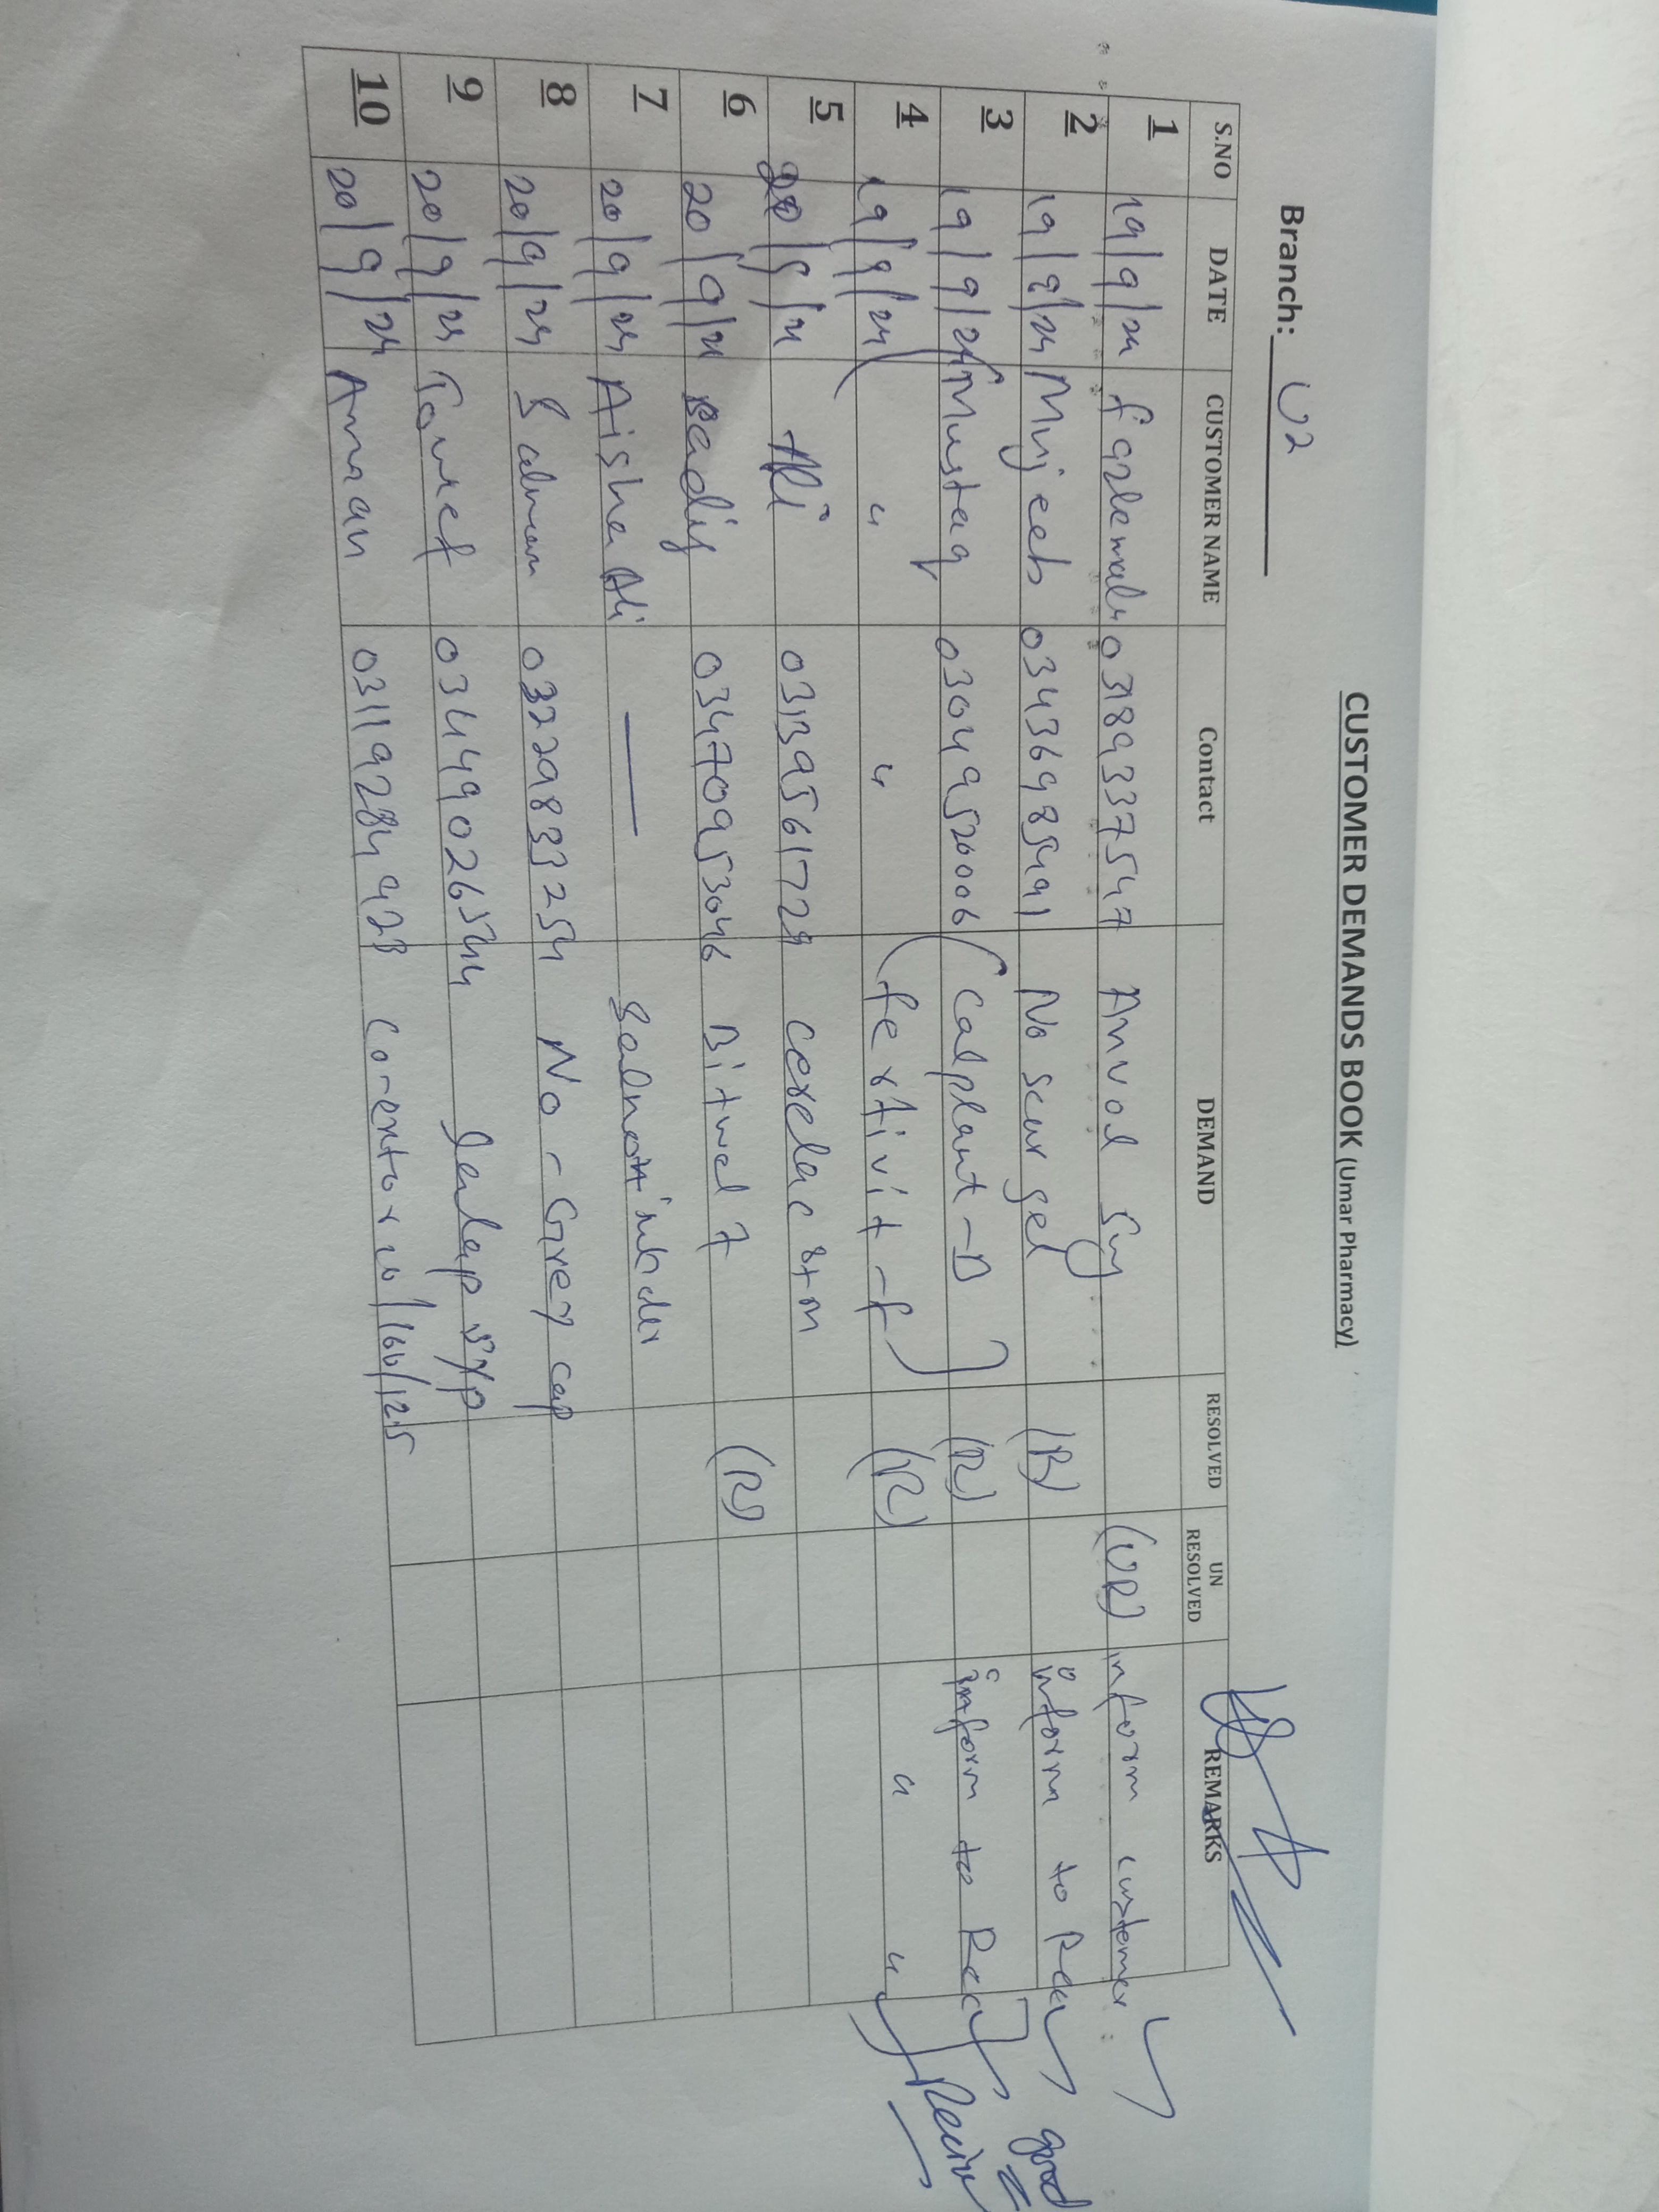 CUSTOMER DEMANDS BOOK (Umar Pharmacy)
Branch: U2
S.NO DATE CUSTOMER NAME Contact DEMAND RESOLVED UN RESOLVED REMARKS
1 19/9/24 03189337547 Anvol Syy (UR) inform customer
2 19/9/24 Mujeeb 03436985491 No scar gel (R) inform to
3 19/9/24 Mustaq 03049520006 Calplant-D (R) inform to
4 19/9/24 " " fertivit-f (R) " "
5 Ali cerelac 3+m
6 20/9/24 Sadiq 03470953046 Bitwel 7 (R)
7 20/9/24 Aisha Ali —
8 20/9/24 Salman 03229833254 No-Grey cap
9 20/9/24 03449026544 syp
10 20/9/24 Arman 03119284423 Co-extor 10/160/12.5
good